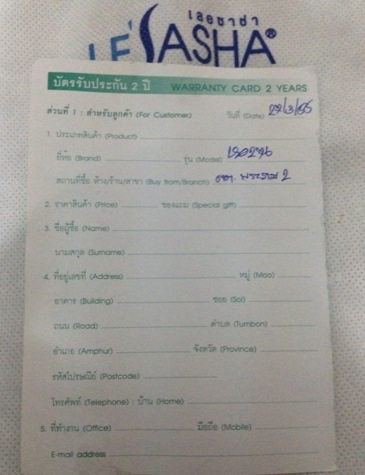 เลอซาช่า
LE'SASHA®
บัตรรับประกัน 2 ปี WARRANTY CARD 2 YEARS
ส่วนที่ 1 : สำหรับลูกค้า (For Customer) วันที่ (Date) 22/3/55
1. ประเภทสินค้า (Product)
ยี่ห้อ (Brand) รุ่น (Model)
สถานที่ซื้อ ห้าง/ร้าน/สาขา (Buy from/Branch) พระราม 2
2. ราคาสินค้า (Price) ของแถม (Special gift)
3. ชื่อผู้ซื้อ (Name)
นามสกุล (Surname)
4. ที่อยู่เลขที่ (Address) หมู่ (Moo)
อาคาร (Building) ซอย (Soi)
ถนน (Road) ตำบล (Tumbon)
อำเภอ (Amphur) จังหวัด (Province)
รหัสไปรษณีย์ (Postcode)
โทรศัพท์ (Telephone) : บ้าน (Home)
5. ที่ทำงาน (Office) มือถือ (Mobile)
E-mail address